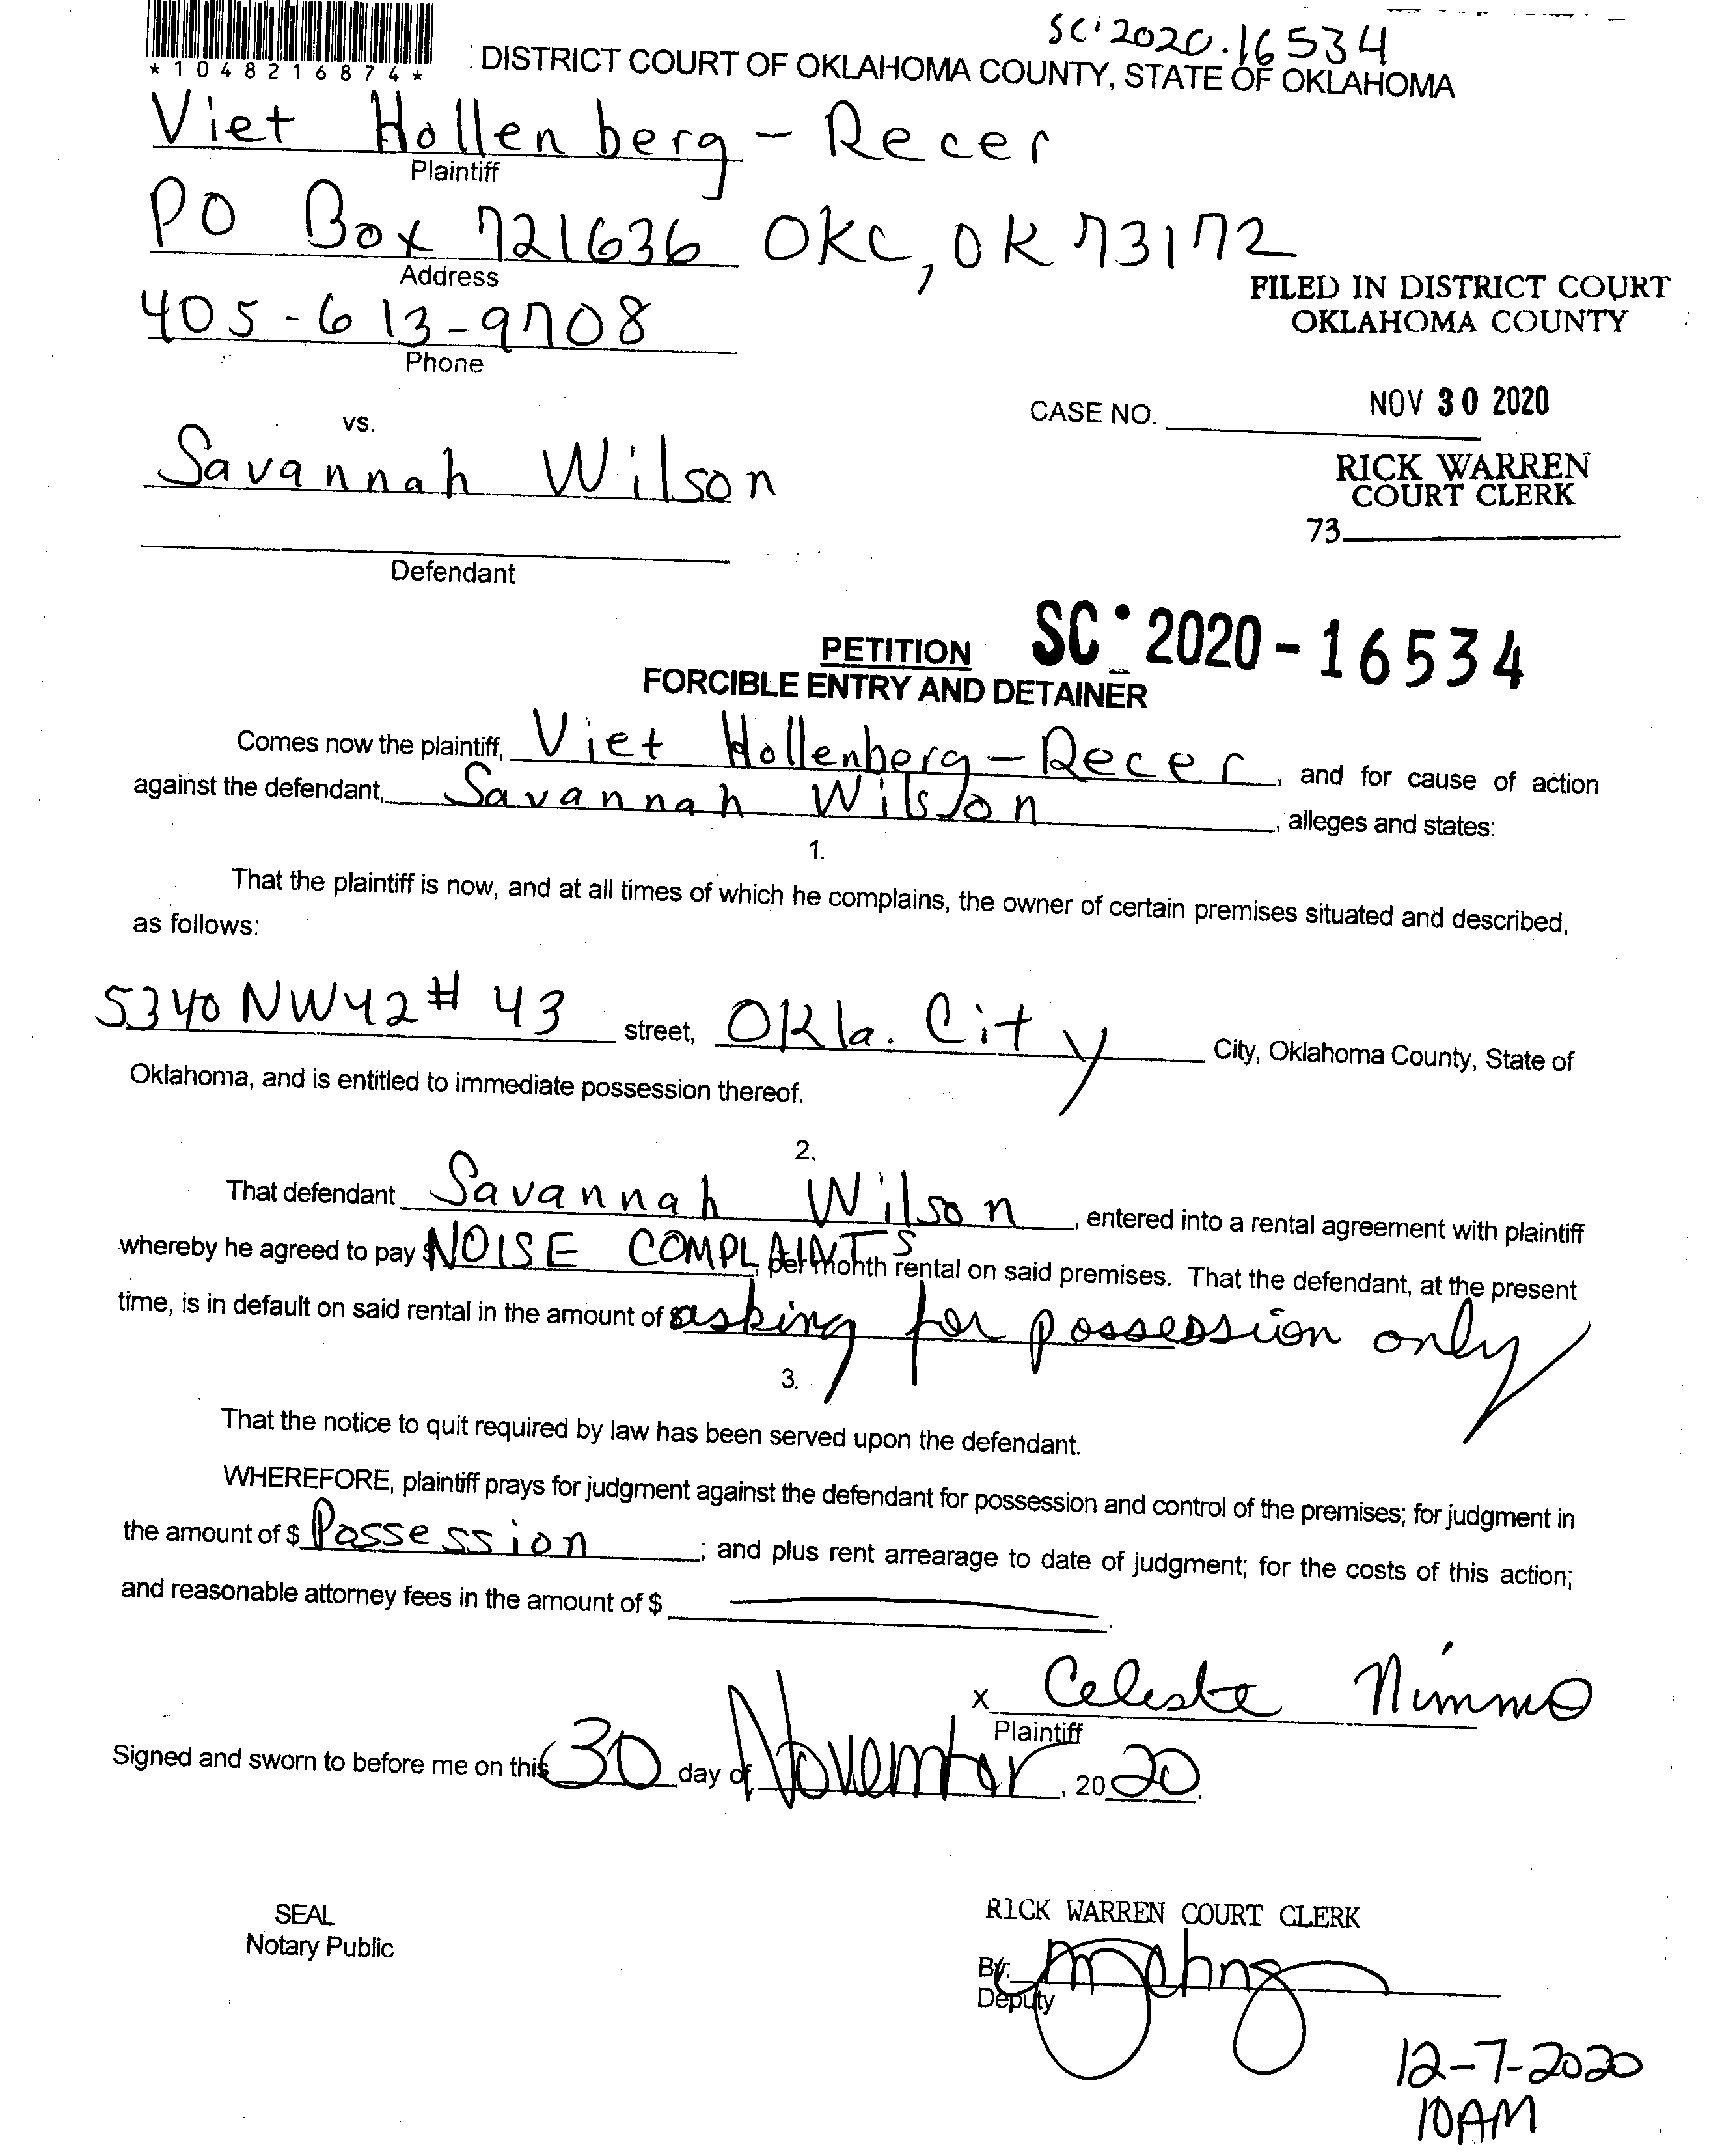 SC·2020·16534
*1048216874*
DISTRICT COURT OF OKLAHOMA COUNTY, STATE OF OKLAHOMA
Viet Hollenberg-Recer
Plaintiff
PO Box 721636 OKC, OK 73172
Address
FILED IN DISTRICT COURT
OKLAHOMA COUNTY
405-613-9708
Phone
CASE NO. NOV 30 2020
vs.
Savannah Wilson
RICK WARREN
COURT CLERK
73
Defendant
PETITION SC·2020-16534
FORCIBLE ENTRY AND DETAINER
Comes now the plaintiff, Viet Hollenberg-Recer, and for cause of action
against the defendant, Savannah Wilson, alleges and states:
1.
That the plaintiff is now, and at all times of which he complains, the owner of certain premises situated and described,
as follows:
5340 NW42 # 43 street, Okla. City City, Oklahoma County, State of
Oklahoma, and is entitled to immediate possession thereof.
2.
That defendant Savannah Wilson, entered into a rental agreement with plaintiff
whereby he agreed to pay $NOISE COMPLAINTS, per month rental on said premises. That the defendant, at the present
time, is in default on said rental in the amount of $asking for possession only
3.
That the notice to quit required by law has been served upon the defendant.
WHEREFORE, plaintiff prays for judgment against the defendant for possession and control of the premises; for judgment in
the amount of $ Possession; and plus rent arrearage to date of judgment; for the costs of this action;
and reasonable attorney fees in the amount of $
x Celeste Nimmo
Plaintiff
Signed and sworn to before me on this 30 day of November, 2020.
SEAL
Notary Public
RICK WARREN COURT CLERK
By:
Deputy
12-7-2020
10AM